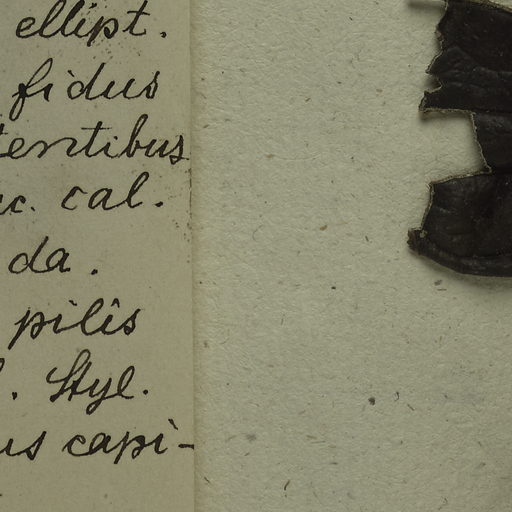 ellipt.
fidus
tentibus
c. cal.
da.
pilis
. Styl.
us capi-